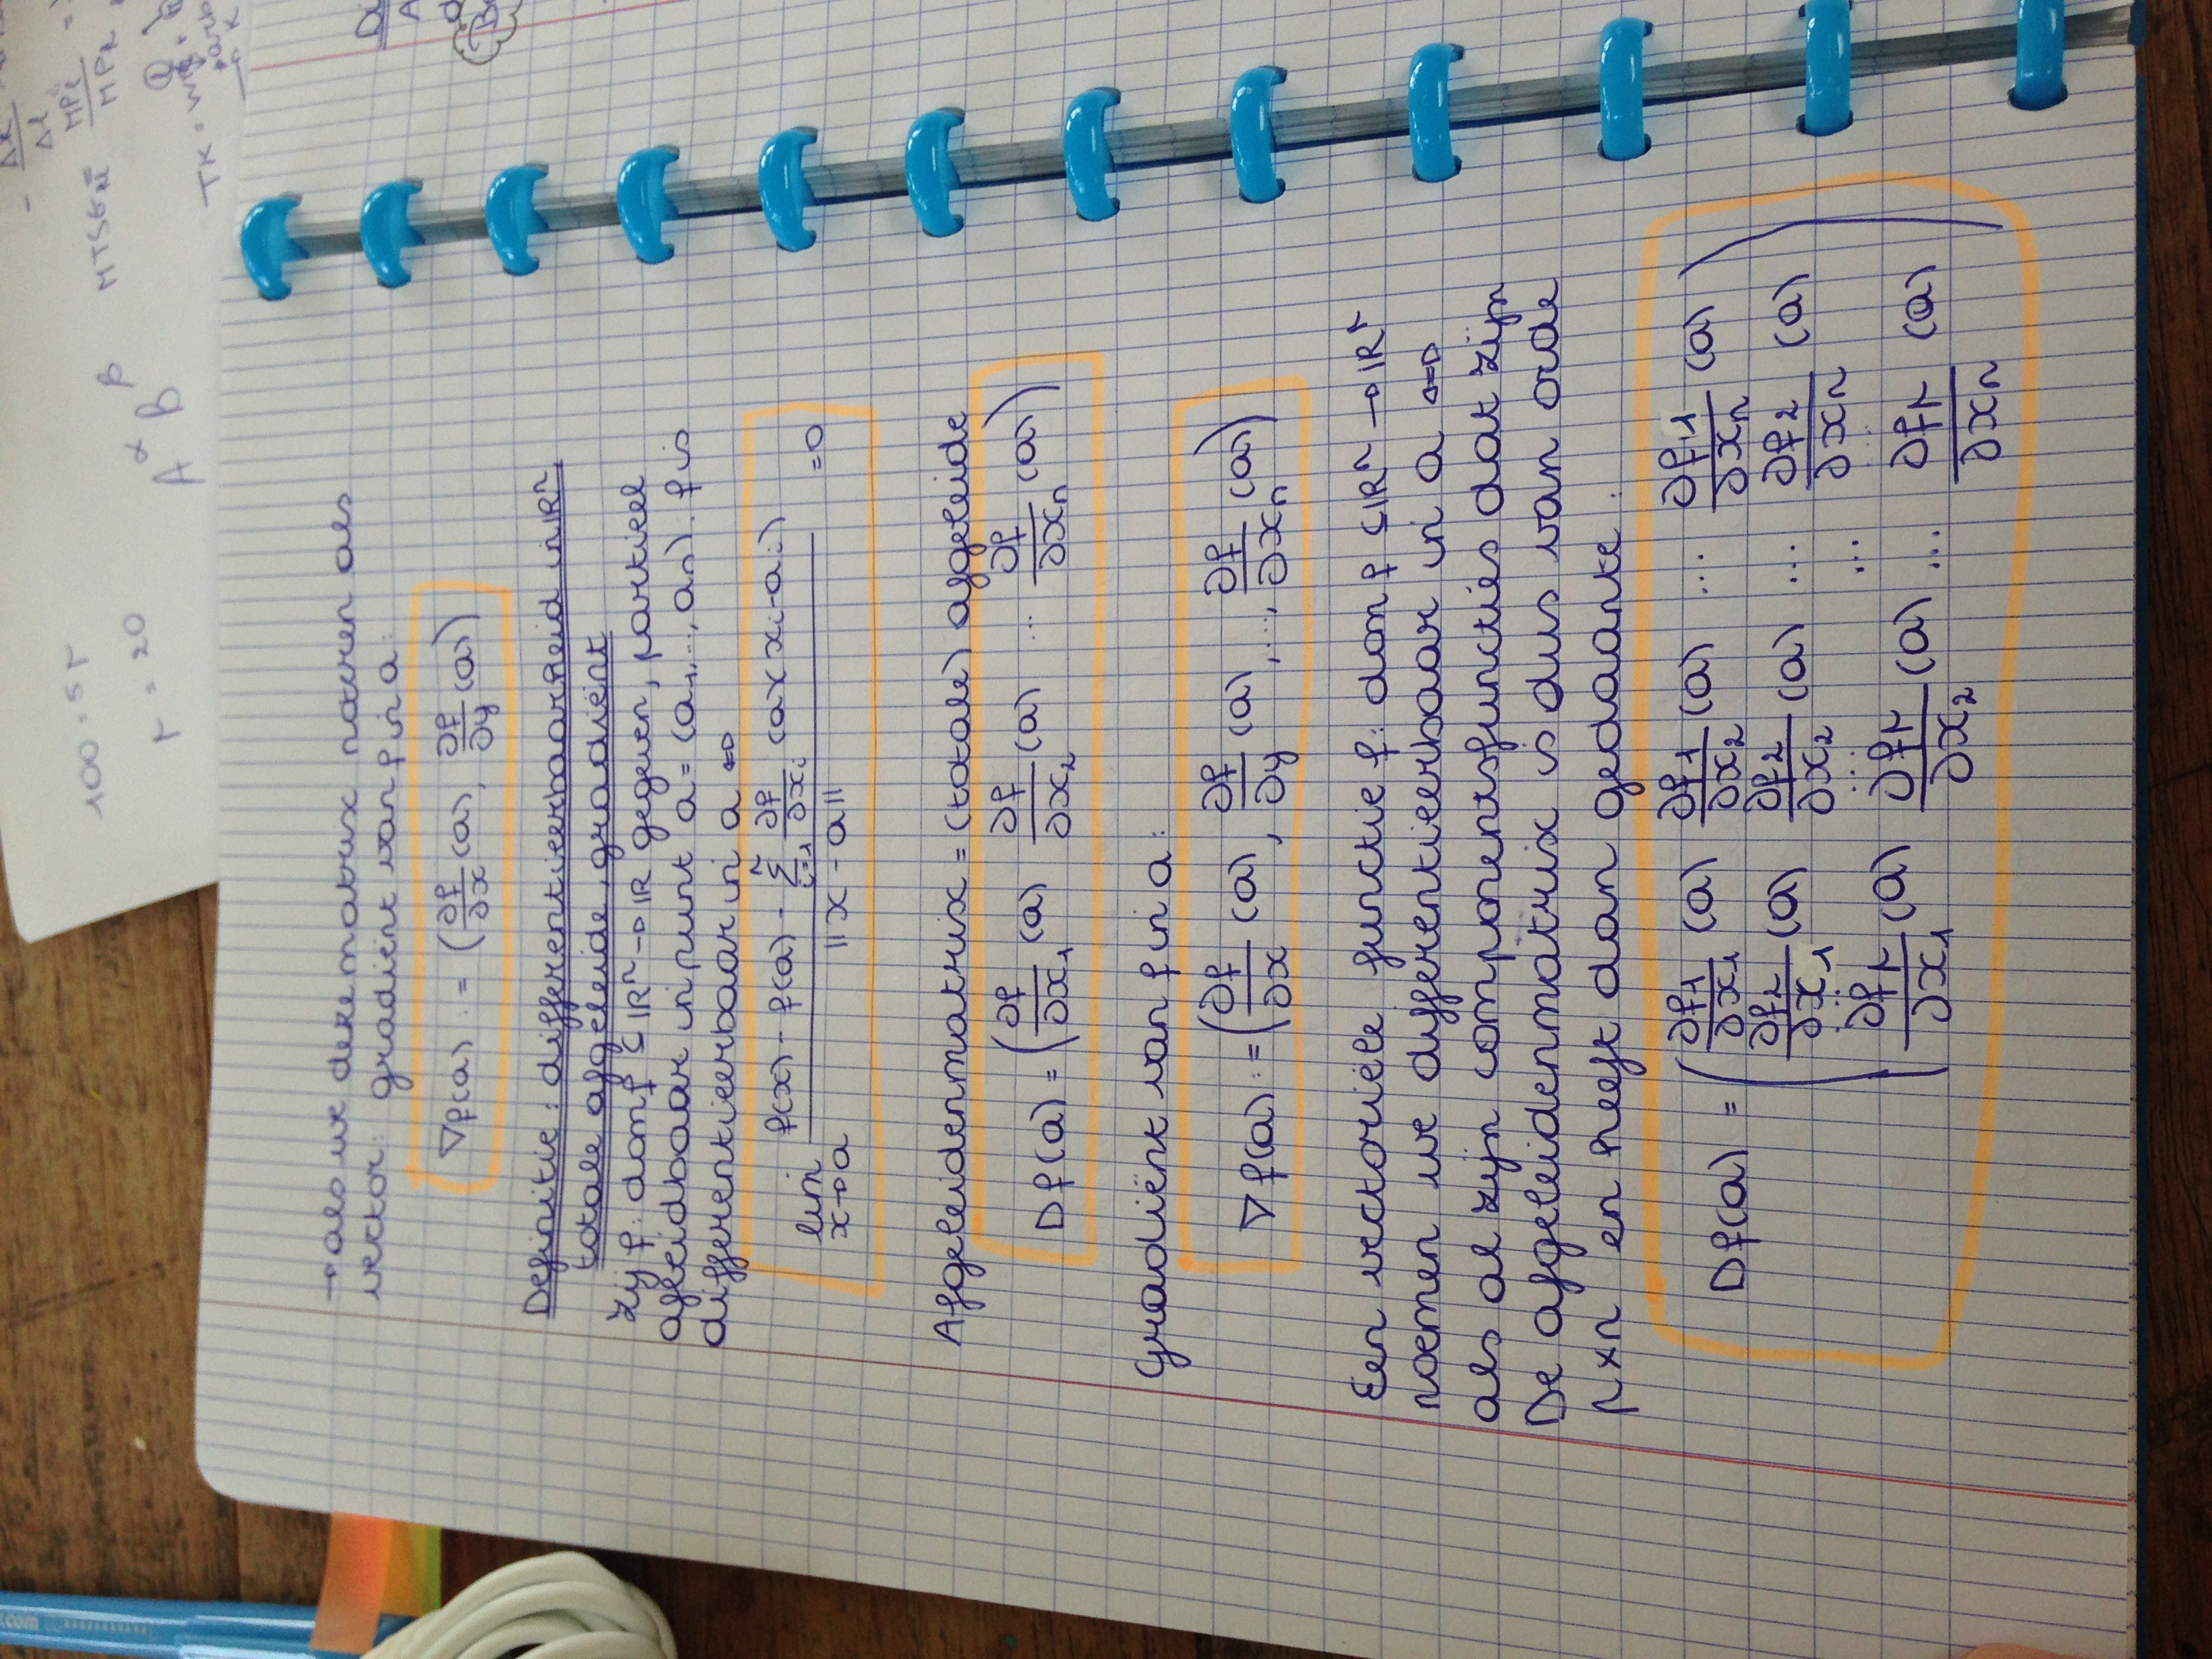 → als we deze matrix noteren als
vector: gradiënt van f in a:
∇f(a) := (∂f/∂x (a), ∂f/∂y (a))
Definitie: differentieerbaarheid in ℝⁿ,
totale afgeleide, gradiënt
Zij f: dom f ⊆ ℝⁿ → ℝ gegeven, partieel
afleidbaar in punt a = (a₁, ..., aₙ). f is
differentieerbaar in a ⇔
lim x→a (f(x) - f(a) - Σⁿᵢ₌₁ ∂f/∂xᵢ (a)(xᵢ - aᵢ)) / ||x - a|| = 0
Afgeleidenmatrix = (totale) afgeleide
Df(a) = (∂f/∂x₁ (a) ∂f/∂x₂ (a) ... ∂f/∂xₙ (a))
Gradiënt van f in a:
∇f(a) := (∂f/∂x (a), ∂f/∂y (a), ..., ∂f/∂xₙ (a))
Een vectoriële functie f: dom f ⊆ ℝⁿ → ℝʳ
noemen we differentieerbaar in a ⇔
als al zijn componentsfuncties dat zijn
De afgeleidenmatrix is dus van orde
r x n en heeft dan gedaante:
Df(a) = (∂f₁/∂x₁ (a) ∂f₁/∂x₂ (a) ... ∂f₁/∂xₙ (a)
∂f₂/∂x₁ (a) ∂f₂/∂x₂ (a) ... ∂f₂/∂xₙ (a)
⋮ ⋮ ... ⋮
∂fr/∂x₁ (a) ∂fr/∂x₂ (a) ... ∂fr/∂xₙ (a))
100 = 5r
r = 20
A^α B^β
MTSKL =
MPL
TK =